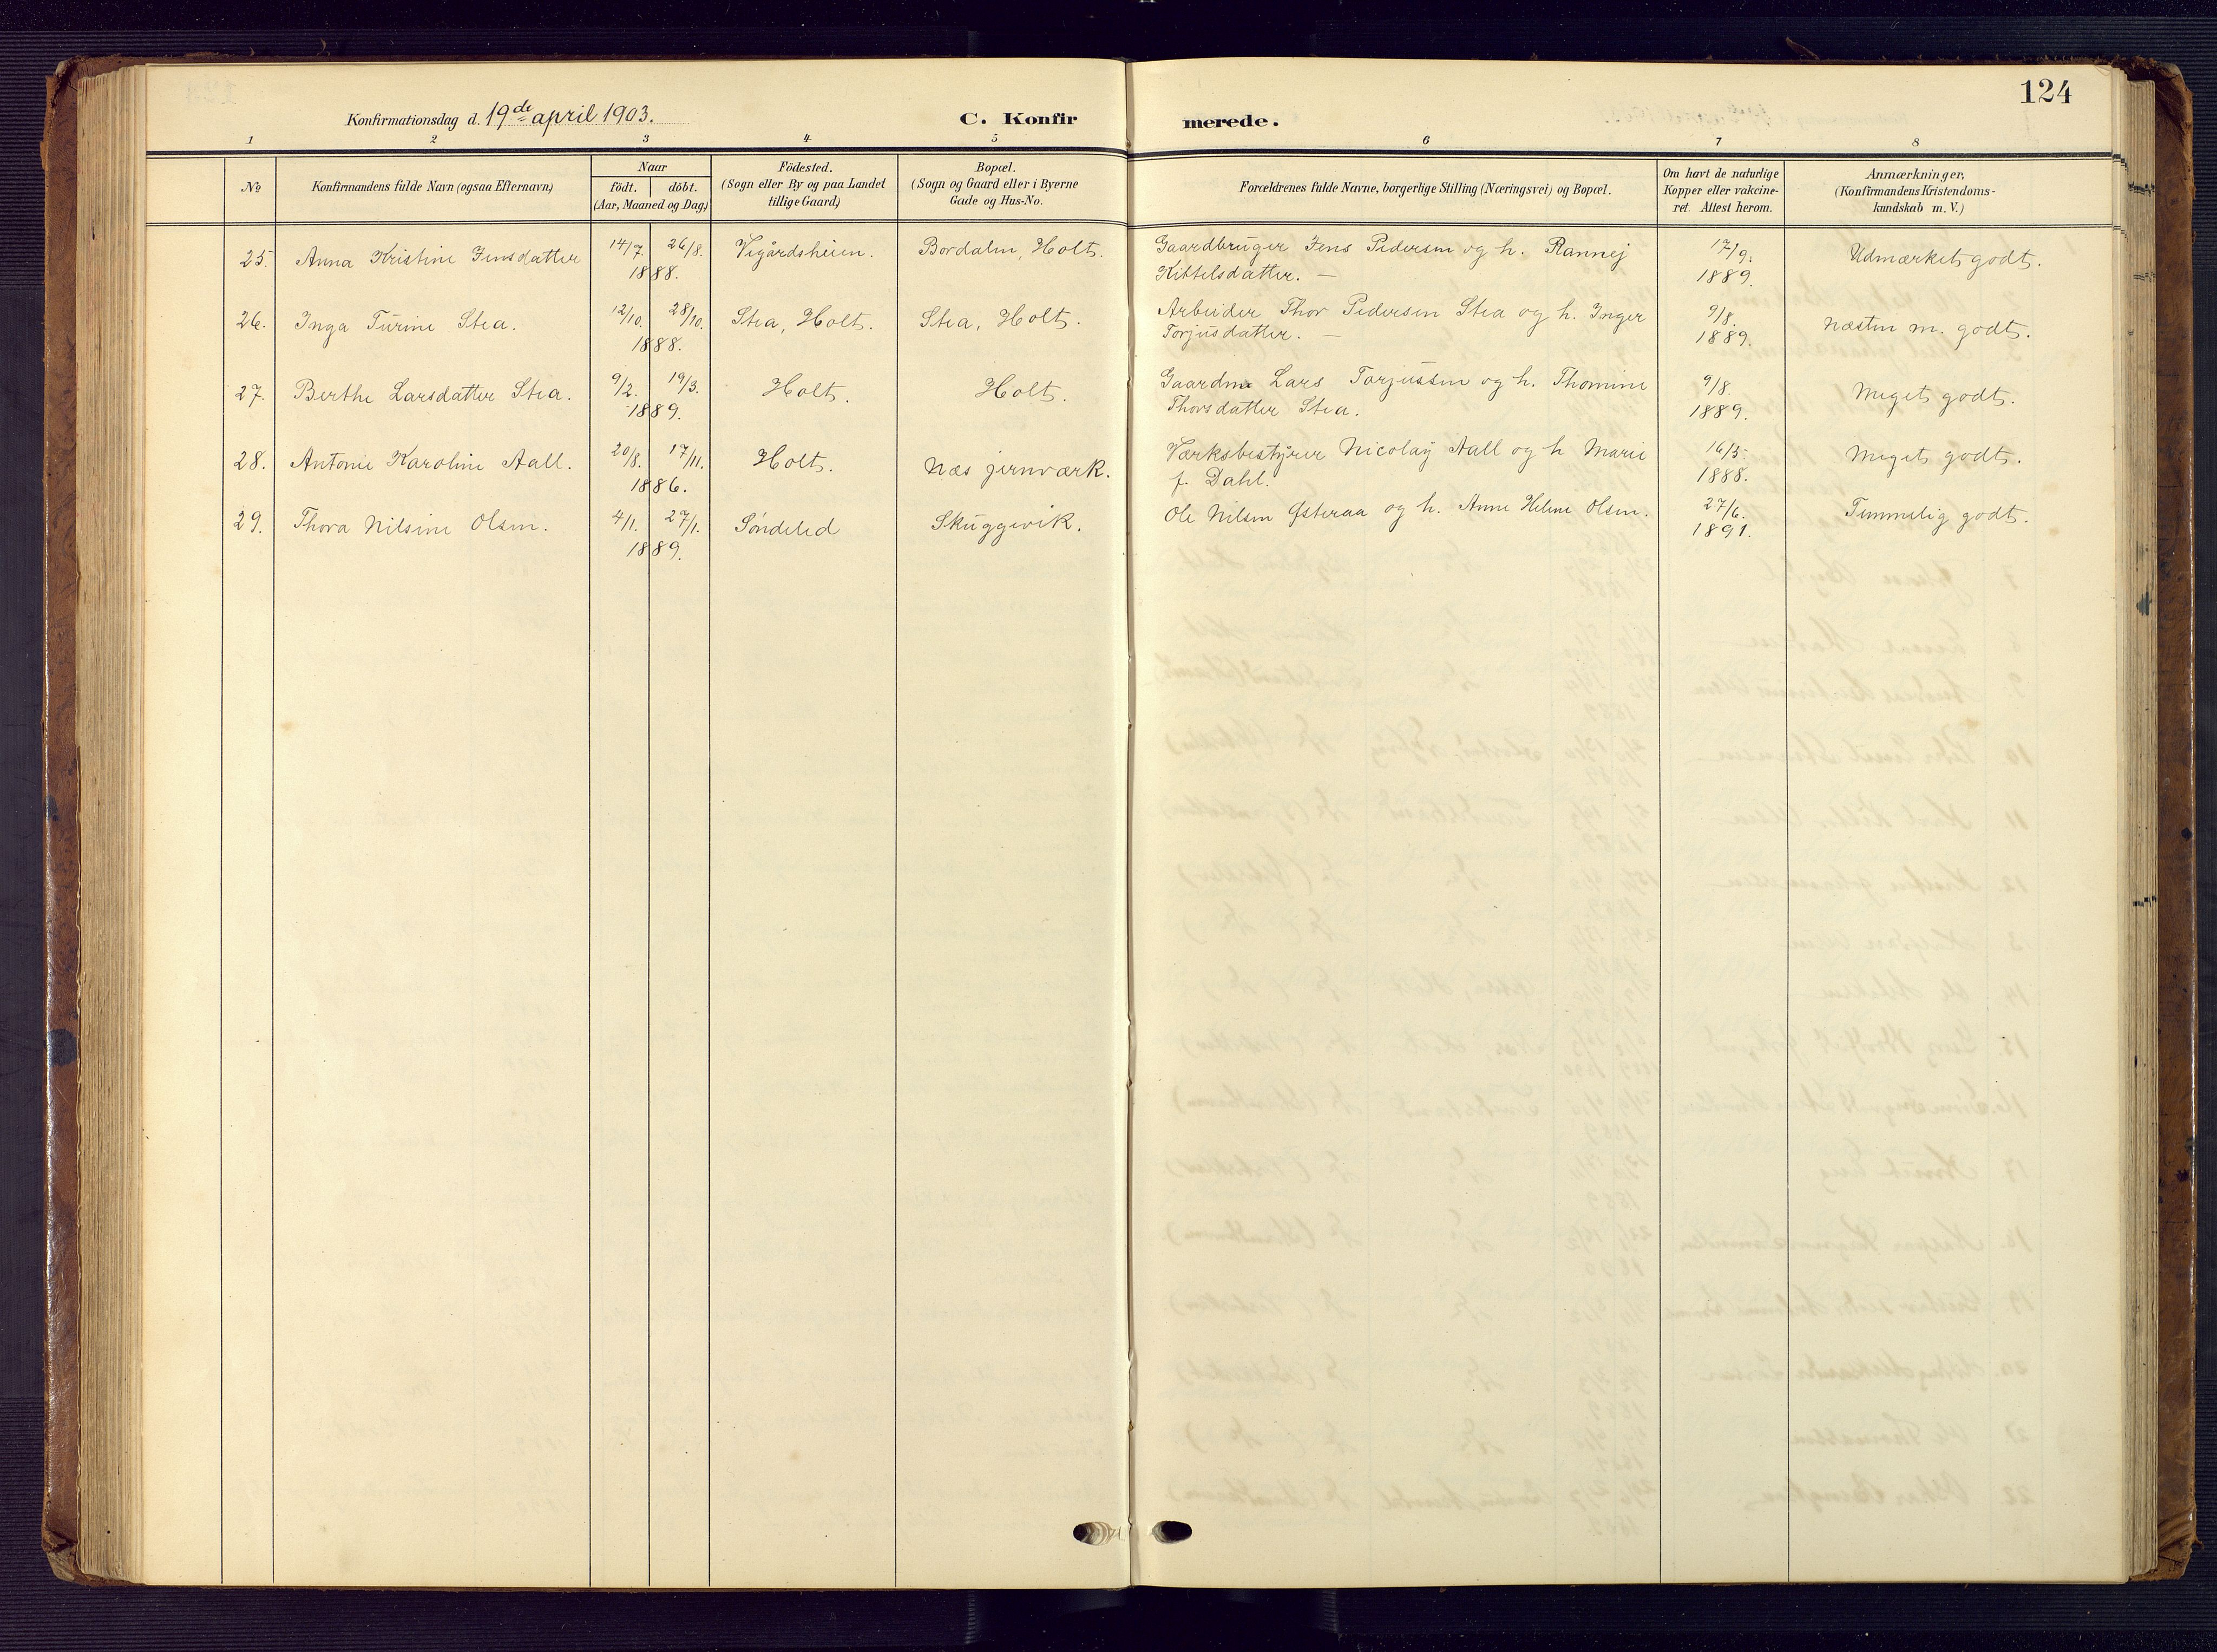 124
Konfirmationsdag d. 19de april 1903.
C. Konfirmerede.
1 2 3 4 5 6 7 8
No
Konfirmandens fulde Navn (ogsaa Efternavn)
Naar
födt. döbt.
(Aar, Maaned og Dag)
Födested.
(Sogn eller By og paa Landet
tillige Gaard)
Bopæl.
(Sogn og Gaard eller i Byerne
Gade og Hus-No.
Forældrenes fulde Navne, borgerlige Stilling (Næringsvei) og Bopæl.
Om havt de naturlige
Kopper eller vakcine-
ret. Attest herom.
Anmærkninger,
(Konfirmandens Kristendoms-
kundskab m. V.)
25. Anna Kristine Jensdatter 14/7. 26/8. 1888. Vegårdsheien. Bordalen, Holt. Gaardbruger Jens Pedersen og h. Rannej
Kittelsdatter. — 17/9. 1889. Udmærket godt.
26. Inga Turine Stea. 12/10. 28/10. 1888. Stea, Holt. Stea, Holt. Arbeider Thor Pedersen Stea og h. Inger
Torjusdatter. — 9/8. 1889. Næsten m. godt.
27. Berthe Larsdatter Stea. 9/2. 19/3. 1889. Holt. Holt. Gaardm. Lars Torjussen og h. Thomine
Thorsdatter Stea. 9/8. 1889. Meget godt.
28. Antonie Karoline Aall. 20/8. 17/11. 1886. Holt. Næs jernværk. Værksbestyrer Nicolay Aall og h Marie
f. Dahl. 16/5. 1888. Meget godt.
29. Thora Nilsine Olsen. 4/1. 27/1. 1889. Søndeled Skuggevik. Ole Nilsen Østeraa og h. Anne Helene Olsen. 27/6. 1891. Temmelig godt.